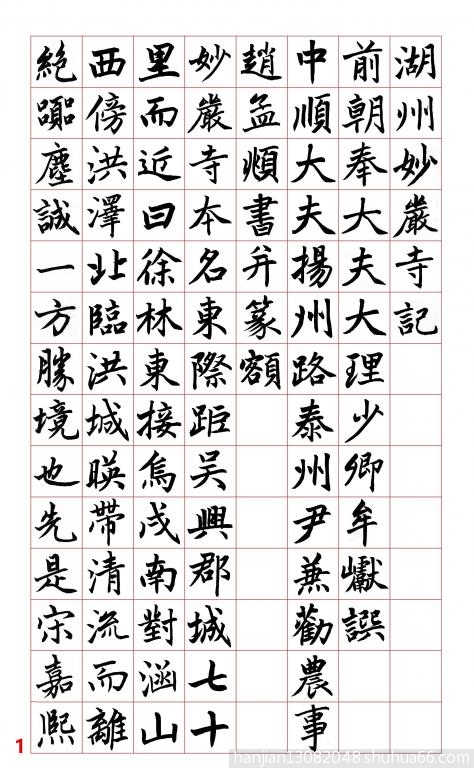 湖州妙嚴寺記
前朝奉大夫大理少卿牟巘譔
中順大夫揚州路泰州尹兼勸農事
趙孟頫書并篆額
妙嚴寺本名東際距吳興郡城七十
里而近曰徐林東接烏戍南對涵山
西傍洪澤北臨洪城暎帶清流而離
絕囂塵誠一方勝境也先是宋嘉熙
1
hanjian13082048.shuhua66.com